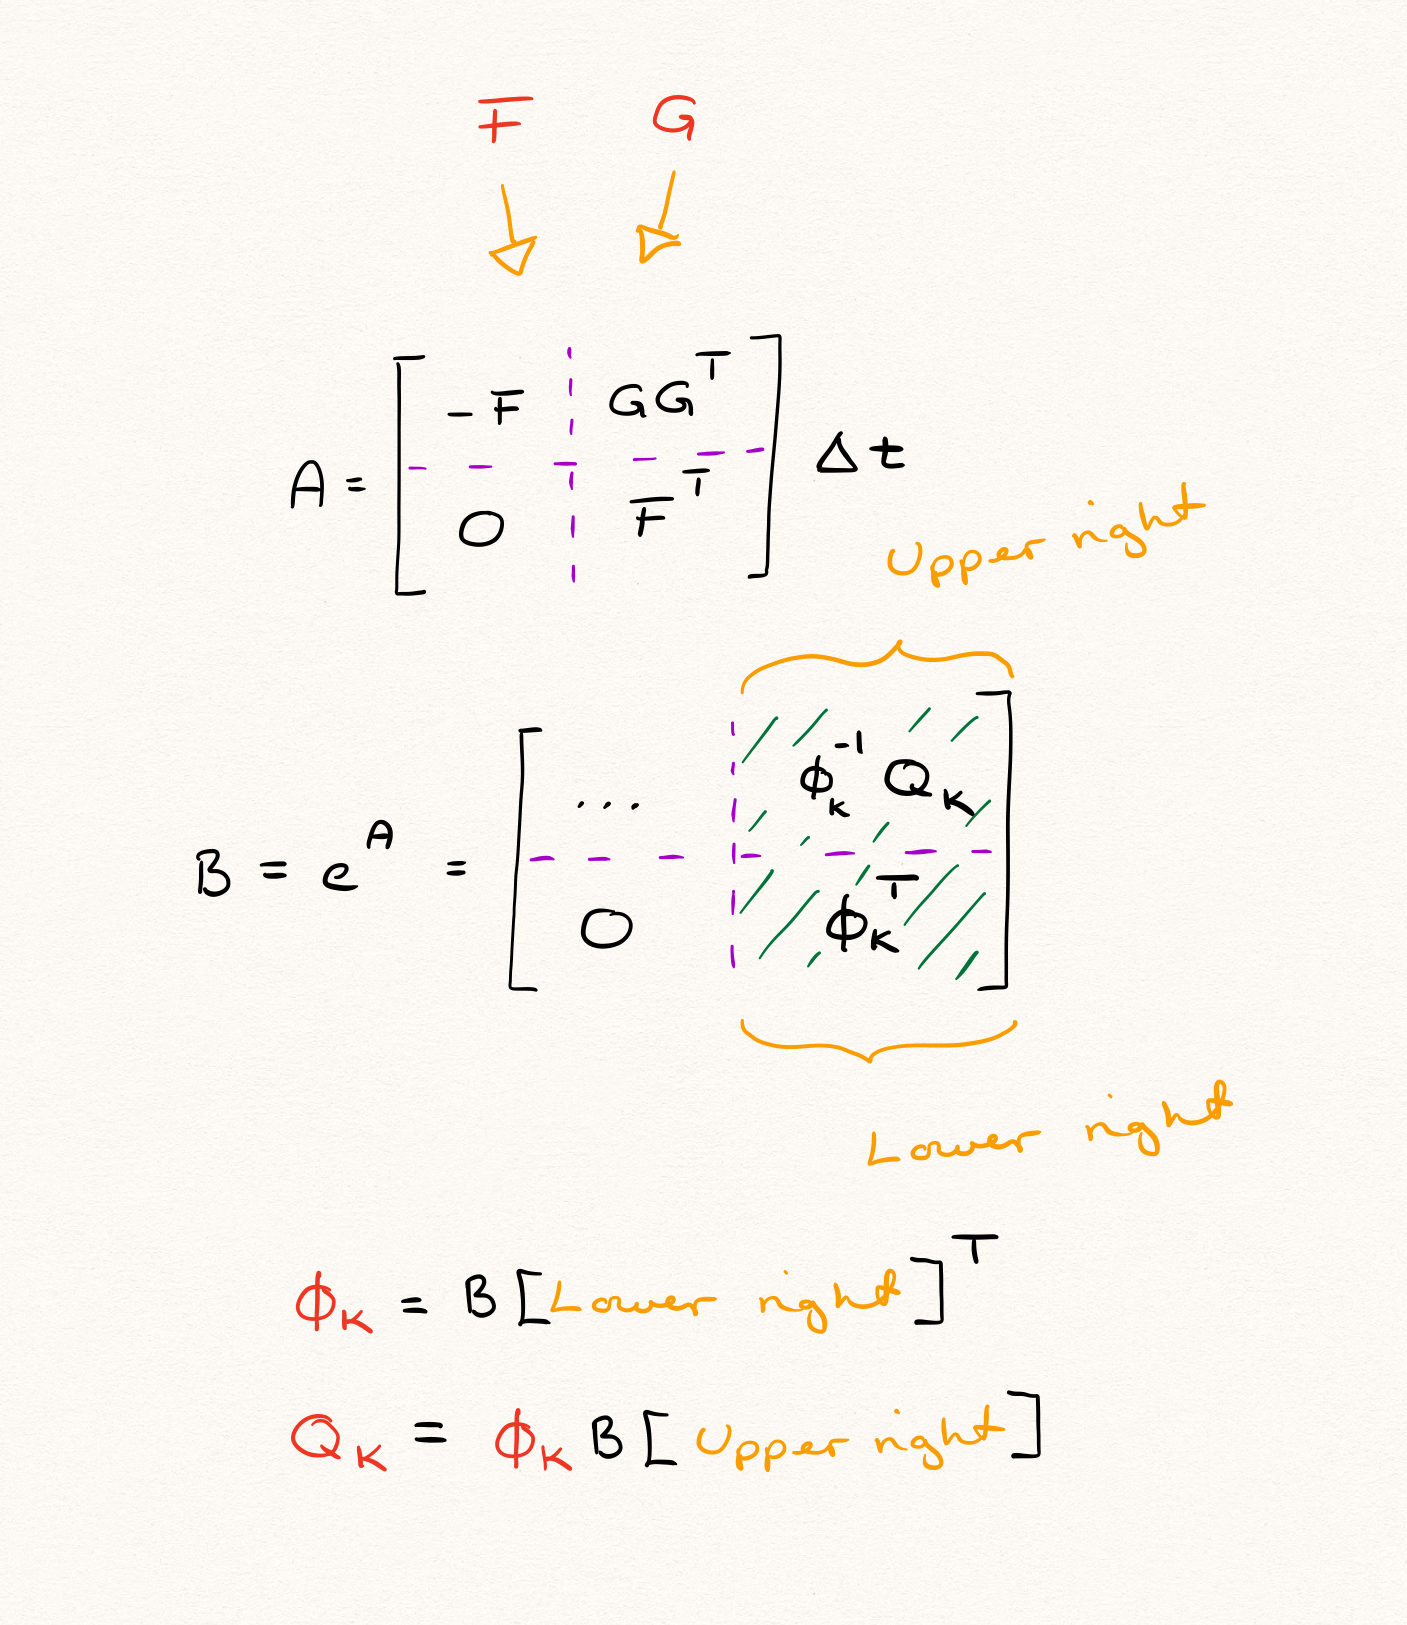 F G
A = [ -F GGᵀ
0 Fᵀ ] Δt
Upper right
B = eᴬ = [ ... ϕₖ⁻¹ Qₖ
0 ϕₖᵀ ]
Lower right
ϕₖ = B [Lower right]ᵀ
Qₖ = ϕₖ B [Upper right]